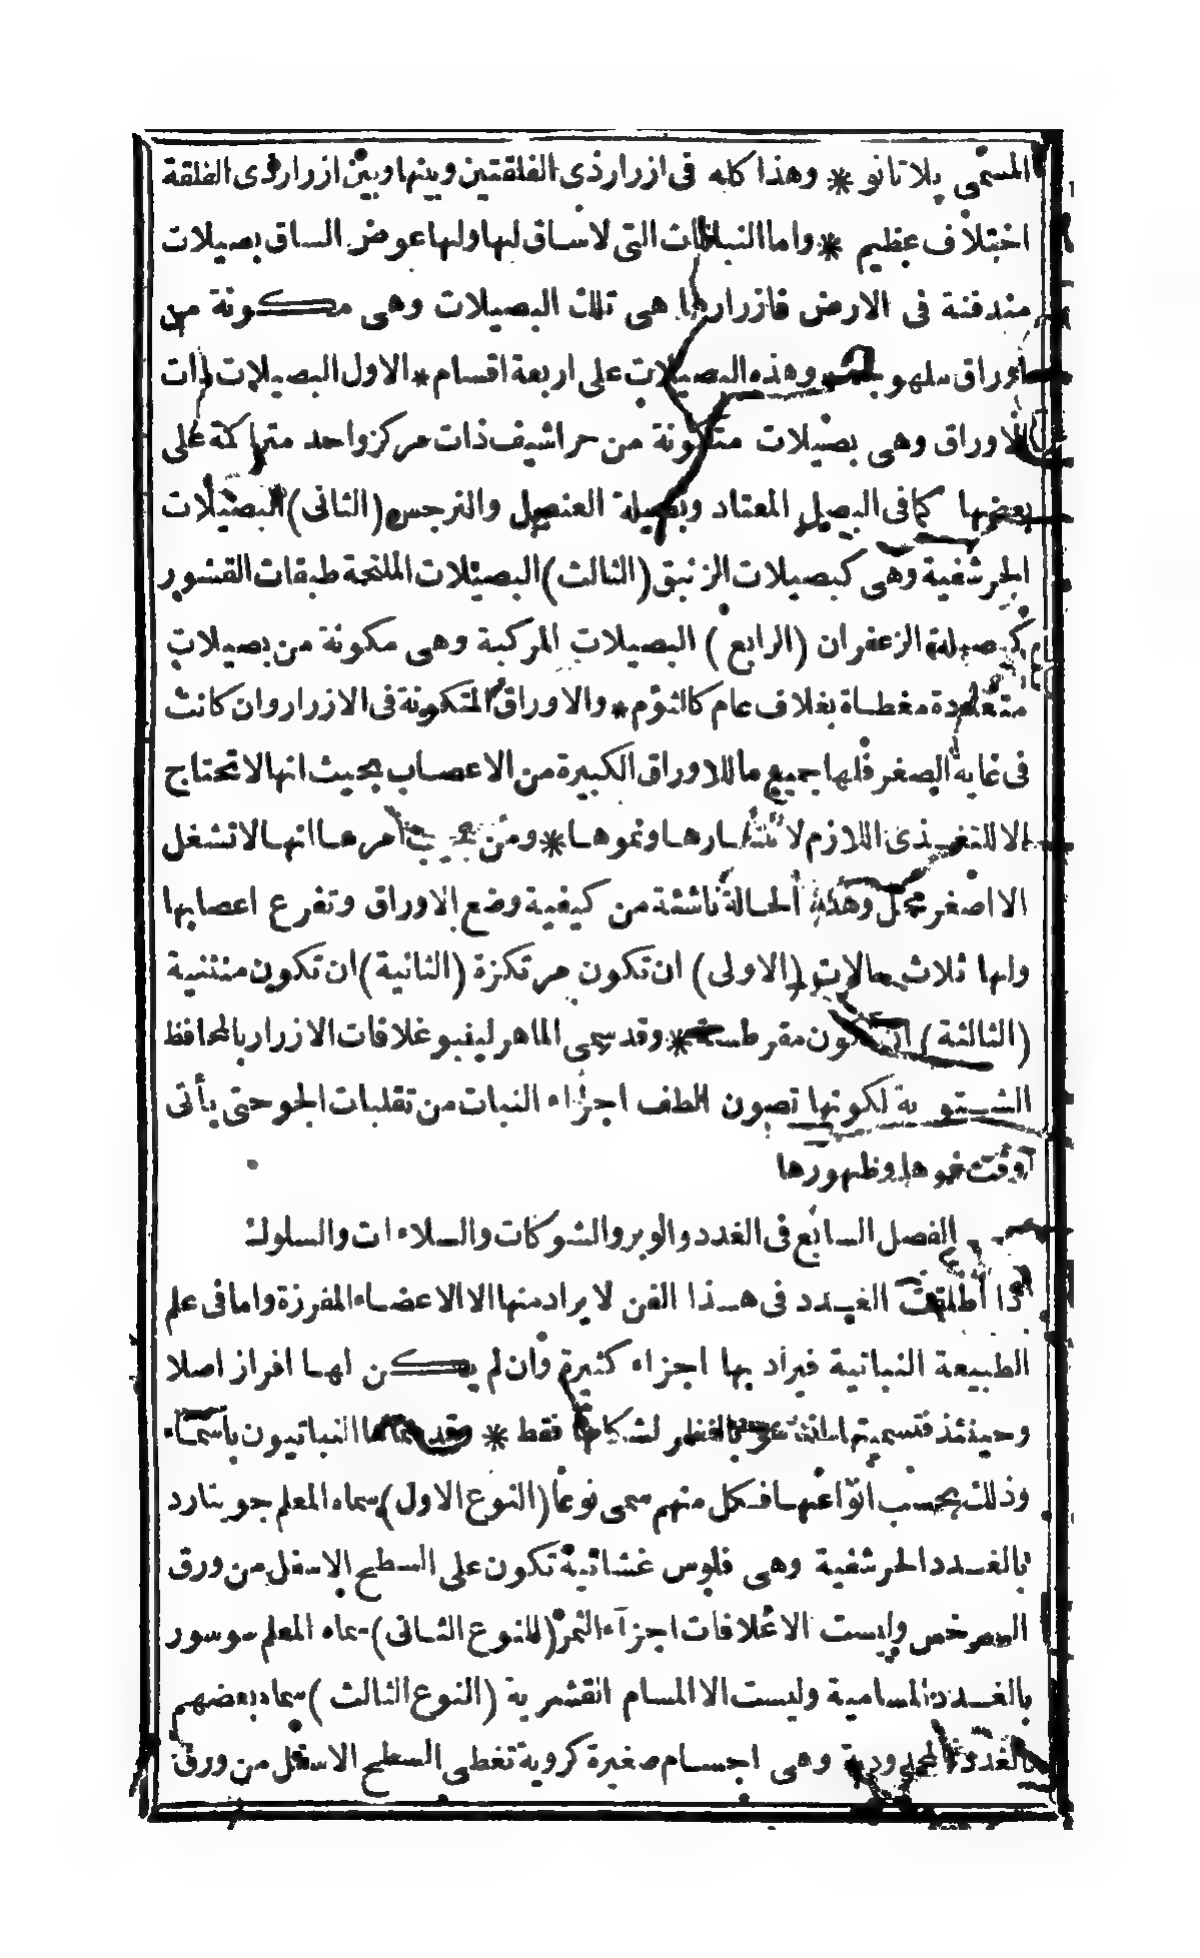 المسمى بلاتانو * وهذا كله فى ازرار ذى الفلقتين وبينها وبين ازرار ذى الفلقة
اختلاف عظيم * واما النباتات التى لا ساق لها ولها عوض الساق بصيلات
مندفنة فى الارض فازرارها هى تلك البصيلات وهى مكونة من
اوراق وهذه البصيلات على اربعة اقسام * الاول البصيلات ذات
الاوراق وهى بصيلات متكونة من حراشيف ذات مركز واحد متراكة على
بعضها كما فى البصل المعتاد وبصيلة العنصل والنرجس (الثانى) البصيلات
الحرشفية وهى كبصيلات الزنبق (الثالث) البصيلات الملتحمة طبقات القشور
كبصيلة الزعفران (الرابع) البصيلات المركبة وهى مكونة من بصيلات
متعددة مغطاة بغلاف عام كالثوم * والاوراق المتكونة فى الازرار وان كانت
فى غاية الصغر فلها جميع ما للاوراق الكبيرة من الاعصاب بحيث انها لا تحتاج
الا للتغذى اللازم لانتشارها ونموها * ومن امرها انها لا تشغل
الا اصغر محل وهذه الحالة ناشئة من كيفية وضع الاوراق وتفرع اعصابها
ولها ثلاث حالات (الاولى) ان تكون مرتكزة (الثانية) ان تكون منثنية
(الثالثة) ان تكون مقرطسة * وقد سمى الماهر لينيو غلافات الازرار بالمحافظ
الشتوية لكونها تصون الطف اجزاء النبات من تقلبات الجو حتى يأتى
وقت نموها وظهورها
الفصل السابع فى الغدد والوبر والشوكات والسلاءات والسلوك
اذا أطلقت الغدد فى هذا الفن لا يراد منها الا الاعضاء المفرزة واما فى علم
الطبيعة النباتية فيراد بها اجزاء كثيرة وان لم يكن لها افراز اصلا
وحينئذ فتسميتها بالنظر لشكلها فقط * وقد سماها النباتيون باسماء
وذلك بحسب انواعها فكل منهم سمى نوعا (النوع الاول) سماه المعلم جويتارد
بالغدد الحرشفية وهى فلوس غشائية تكون على السطح الاسفل من ورق
السرخس وليست الا غلافات اجزاء الثمر (النوع الثانى) سماه المعلم سوسور
بالغدد المسامية وليست الا المسام القشرية (النوع الثالث) سماه بعضهم
بالغدد وهى اجسام صغيرة كروية تغطى السطح الاسفل من ورق